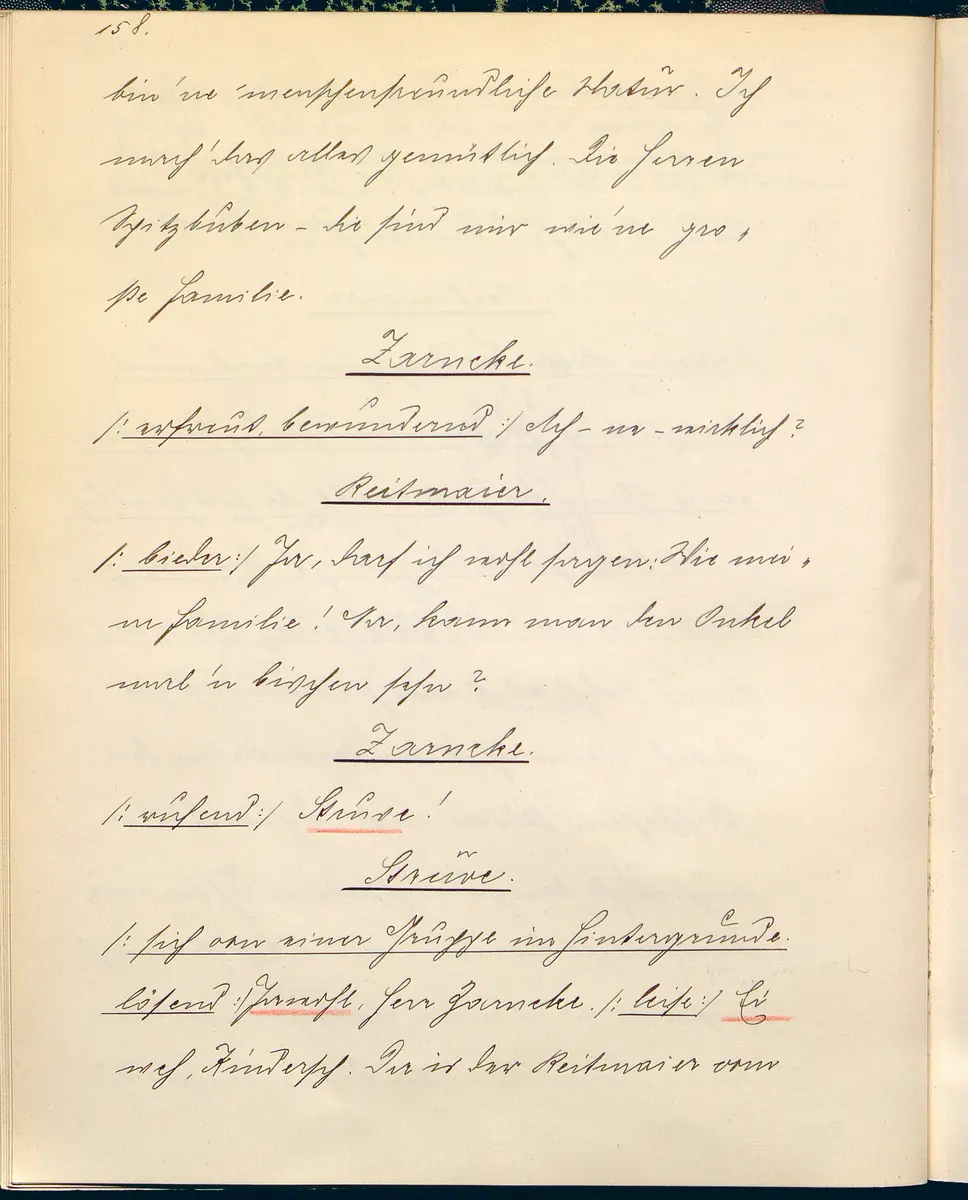 158.
bin 'ne menschenfreundliche Natur. Ich
mach' das alles gemütlich. Die Herren
Spitzbuben – die sind mir wie 'ne gro„
ße Familie.
Zarncke.
/: erfreut, bewundernd :/ Ach – ne – wirklich?
Reitmaier.
/: bieder :/ Ja, darf ich wohl sagen: Wie mei„
ne Familie! Na, kann man den Onkel
mal 'n bischen sehn?
Zarncke.
/: rufend :/ Struve!
Struve.
/: sich von einer Gruppe im Hintergrunde
lösend :/ Jawohl, Herr Zarncke. /: leise :/ Ei
weh, Kindersch. Da is der Reitmaier vom